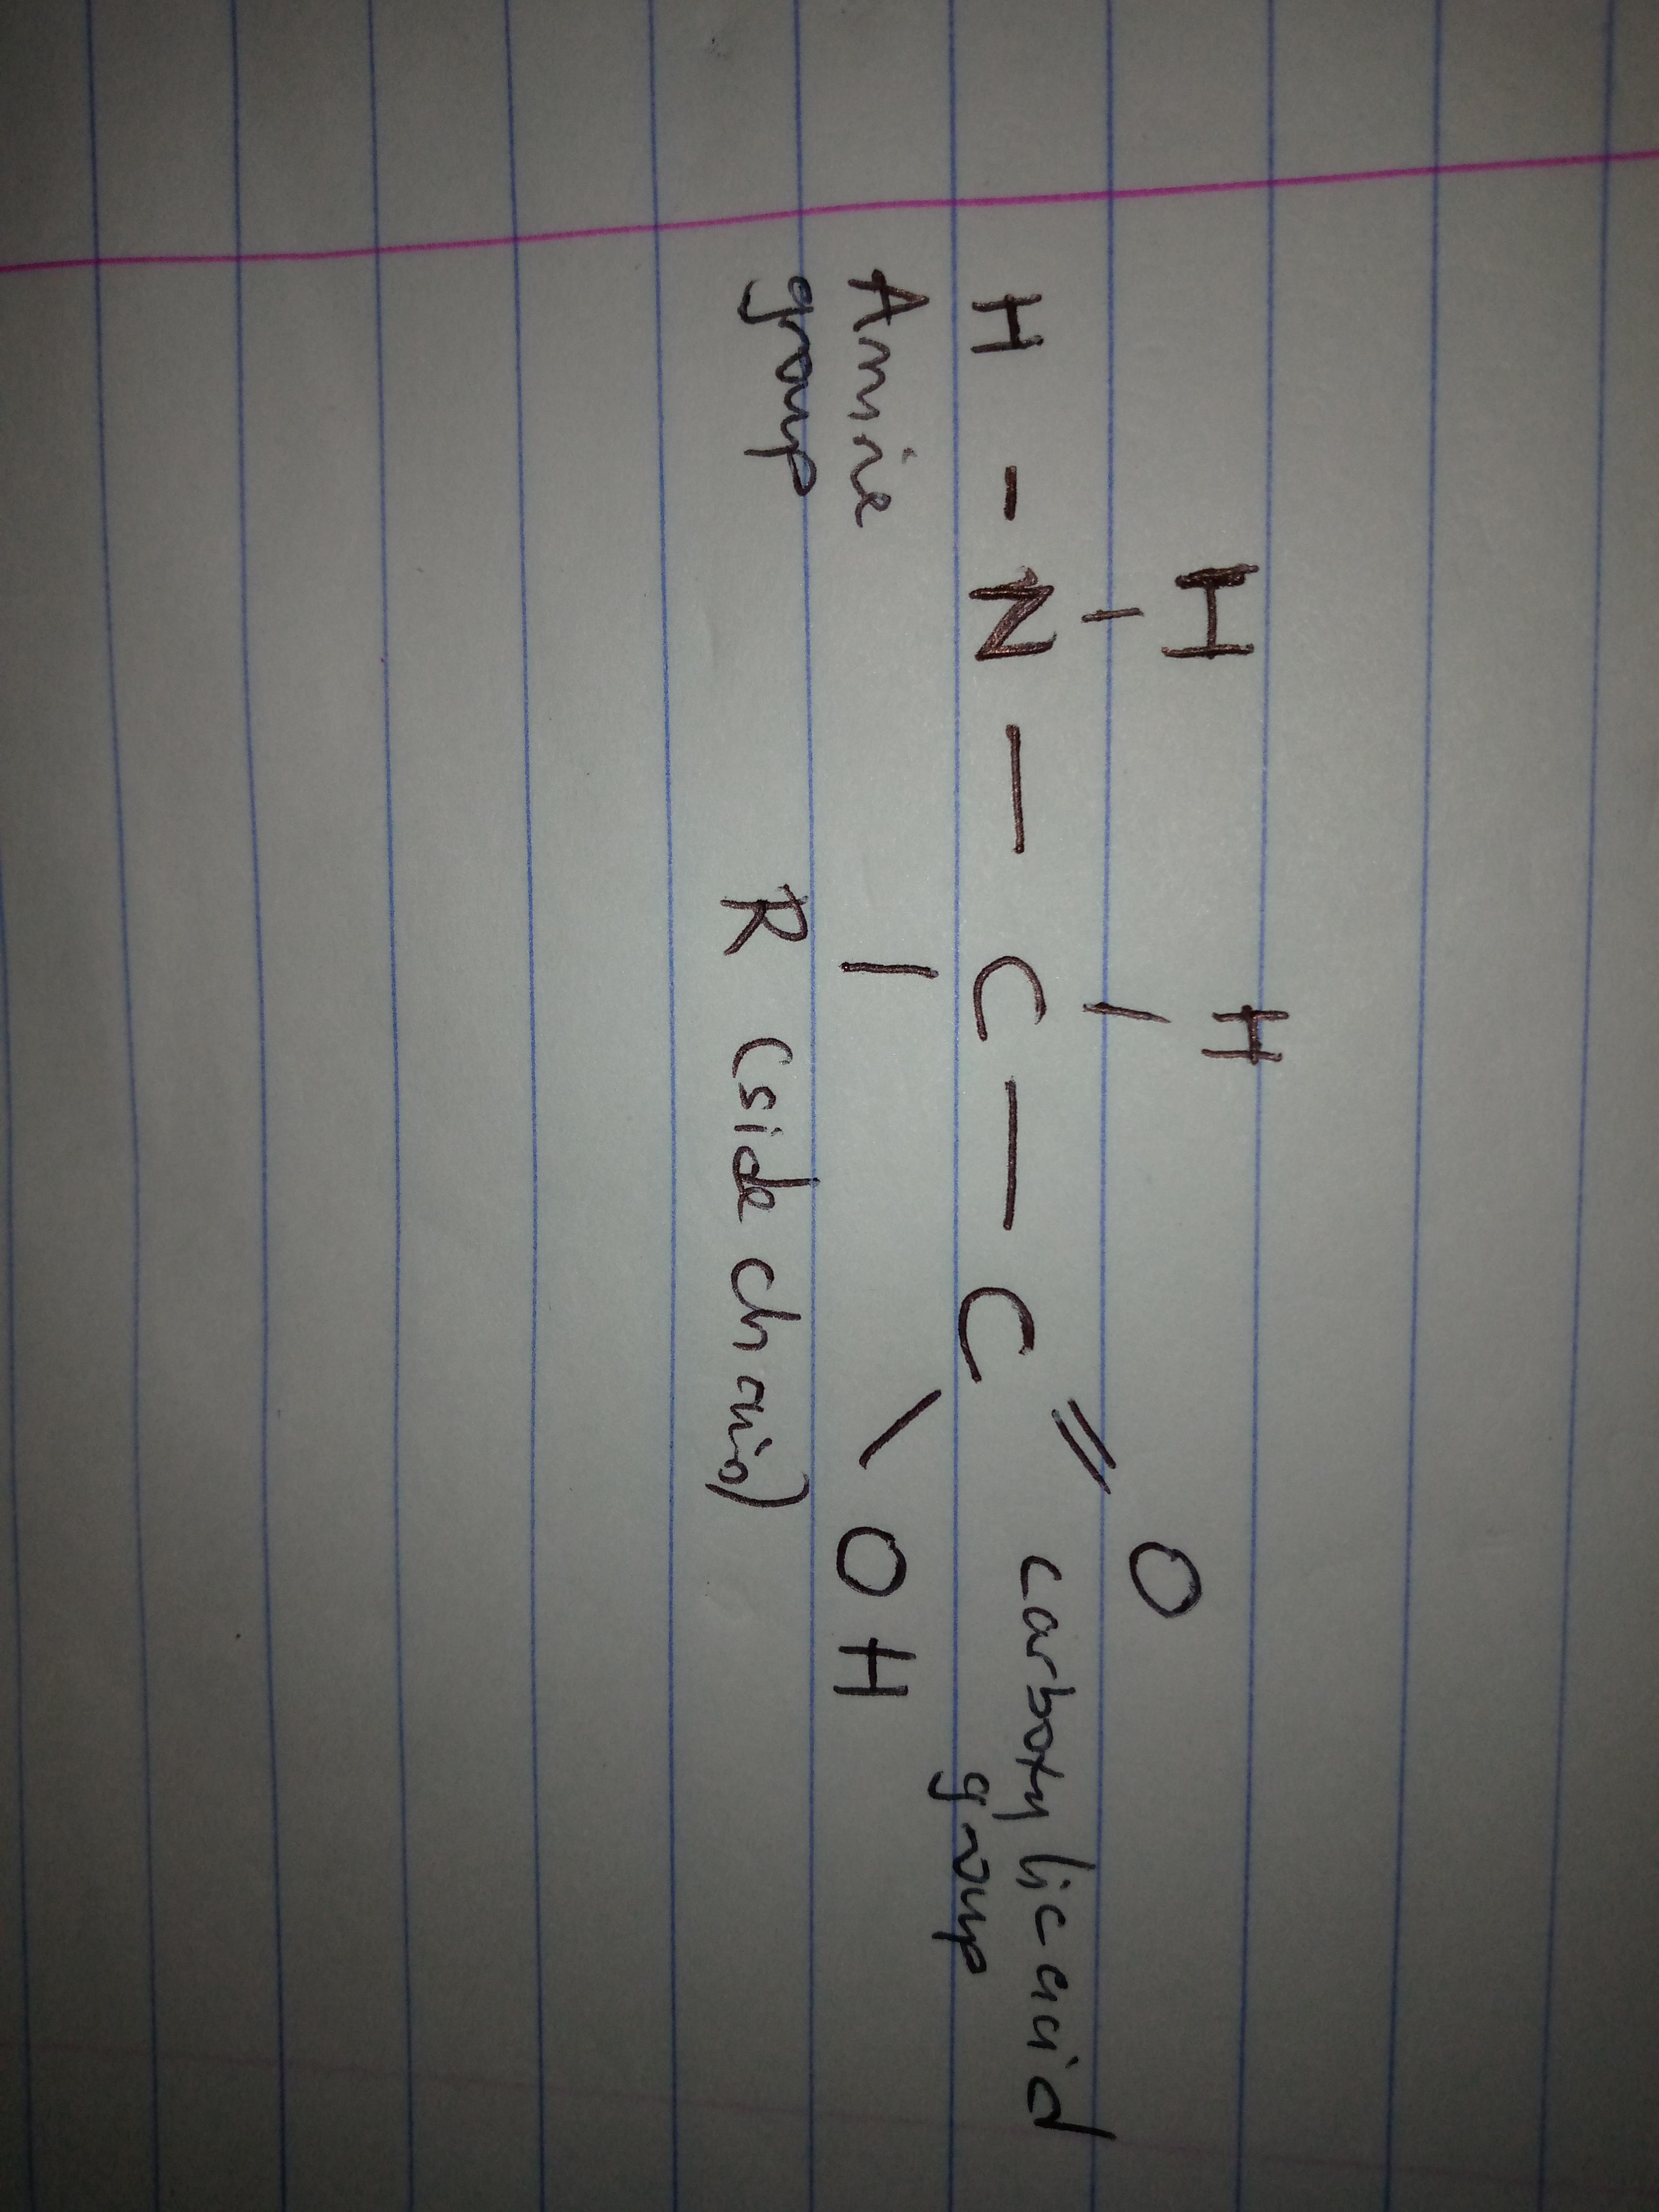 H H O
H - N — C — C carboxylic acid
group
Amine OH
group R (side chain)